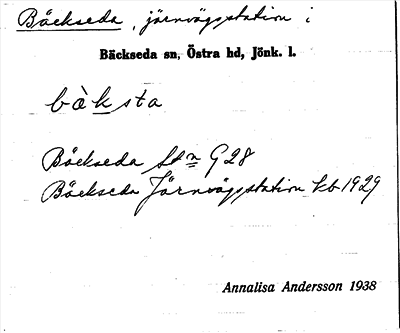 Bäckseda, järnvägsstation i
Bäckseda sn, Östra hd, Jönk. l.
bàksta
Bäckseda Stn G28
Bäckseda Järnvägsstation kb 1929
Annalisa Andersson 1938